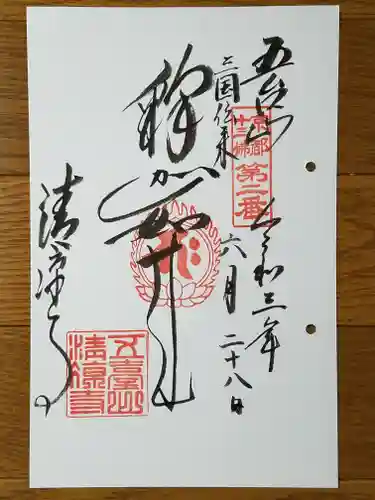 五台山
令和三年
六月二十八日
京都
十三佛
第二番
三国伝来
釈迦如来
清凉寺
五臺山
清凉寺